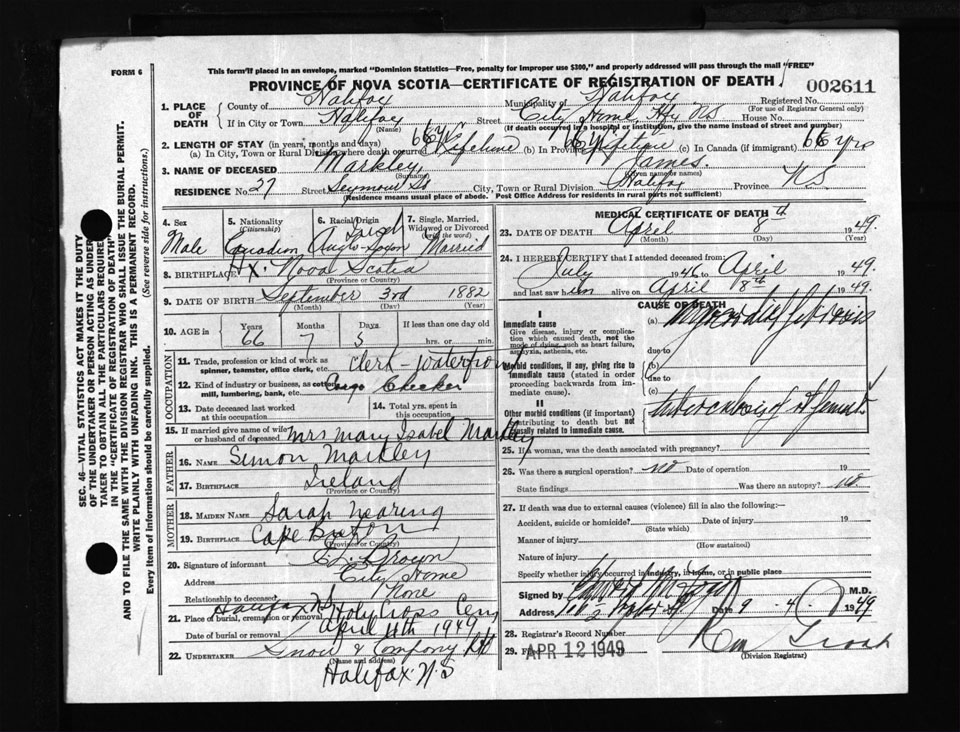 FORM 6
This form if placed in an envelope, marked "Dominion Statistics—Free, penalty for improper use $300," and properly addressed will pass through the mail "FREE"
PROVINCE OF NOVA SCOTIA—CERTIFICATE OF REGISTRATION OF DEATH
002611
1. PLACE OF DEATH
County of Halifax Municipality of Halifax Registered No.
(For use of Registrar General only)
If in City or Town Halifax Street City Home, Hfx NS House No.
(Name) (If death occurred in a hospital or institution, give the name instead of street and number)
2. LENGTH OF STAY (in years, months and days)
(a) In City, Town or Rural Division where death occurred 66 yrs Lifetime (b) In Province 66 yrs Lifetime (c) In Canada (if immigrant) 66 yrs
3. NAME OF DECEASED Markley James.
(Surname) (Given name or names)
RESIDENCE No. 27 Street Seymour St City, Town or Rural Division Halifax Province N.S
(Residence means usual place of abode. Post Office Address for residents in rural parts not sufficient)
4. Sex Male
5. Nationality (Citizenship) Canadian
6. Racial Origin Irish Anglo-Saxon
7. Single, Married, Widowed or Divorced (write the word) Married
8. BIRTHPLACE X. Nova Scotia
(Province or Country)
9. DATE OF BIRTH September 3rd 1882
(Month) (Day) (Year)
10. AGE in Years Months Days If less than one day old
66 7 5 hrs. or min.
OCCUPATION
11. Trade, profession or kind of work as spinner, teamster, office clerk, etc. Clerk - Waterfront
12. Kind of industry or business, as cotton mill, lumbering, bank, etc. Cargo Checker
13. Date deceased last worked at this occupation
14. Total yrs. spent in this occupation
15. If married give name of wife or husband of deceased Mrs Mary Isabel Markley
FATHER
16. NAME Simon Markley
17. BIRTHPLACE Ireland
(Province or Country)
MOTHER
18. MAIDEN NAME Sarah Nearing
19. BIRTHPLACE Cape Breton
(Province or Country)
20. Signature of informant Brown
Address City Home
Relationship to deceased None
21. Place of burial, cremation or removal Halifax N.S Holy Cross Cem
Date of burial or removal April 11th 1949
22. UNDERTAKER Snow & Company Ltd
(Name and address)
Halifax N.S
MEDICAL CERTIFICATE OF DEATH
23. DATE OF DEATH April 8th 1949
(Month) (Day) (Year)
24. I HEREBY CERTIFY that I attended deceased from:
July 1946 to April 1949.
and last saw him alive on April 8th 1949.
CAUSE OF DEATH
I
Immediate cause
Give disease, injury or complication which caused death, not the mode of dying, such as heart failure, asphyxia, asthenia, etc.
(a)
due to
Morbid conditions, if any, giving rise to immediate cause (stated in order proceeding backwards from immediate cause).
(b)
due to
(c)
II
Other morbid conditions (if important) contributing to death but not causally related to immediate cause.
25. If a woman, was the death associated with pregnancy?
26. Was there a surgical operation? no Date of operation 19
State findings Was there an autopsy? no.
27. If death was due to external causes (violence) fill in also the following:—
Accident, suicide or homicide? Date of injury 19
(State which)
Manner of injury
(How sustained)
Nature of injury
Specify whether injury occurred in industry, in home, or in public place
Signed by M.D.
Address Date 9 - 4 1949
28. Registrar's Record Number
29. APR 12 1949
(Division Registrar)
SEC. 46—VITAL STATISTICS ACT MAKES IT THE DUTY
OF THE UNDERTAKER OR PERSON ACTING AS UNDER-
TAKER TO OBTAIN ALL THE PARTICULARS REQUIRED
IN THE "CERTIFICATE OF REGISTRATION OF DEATH"
AND TO FILE THE SAME WITH THE DIVISION REGISTRAR WHO SHALL ISSUE THE BURIAL PERMIT.
WRITE PLAINLY WITH UNFADING INK. THIS IS A PERMANENT RECORD.
Every item of information should be carefully supplied. (See reverse side for instructions.)